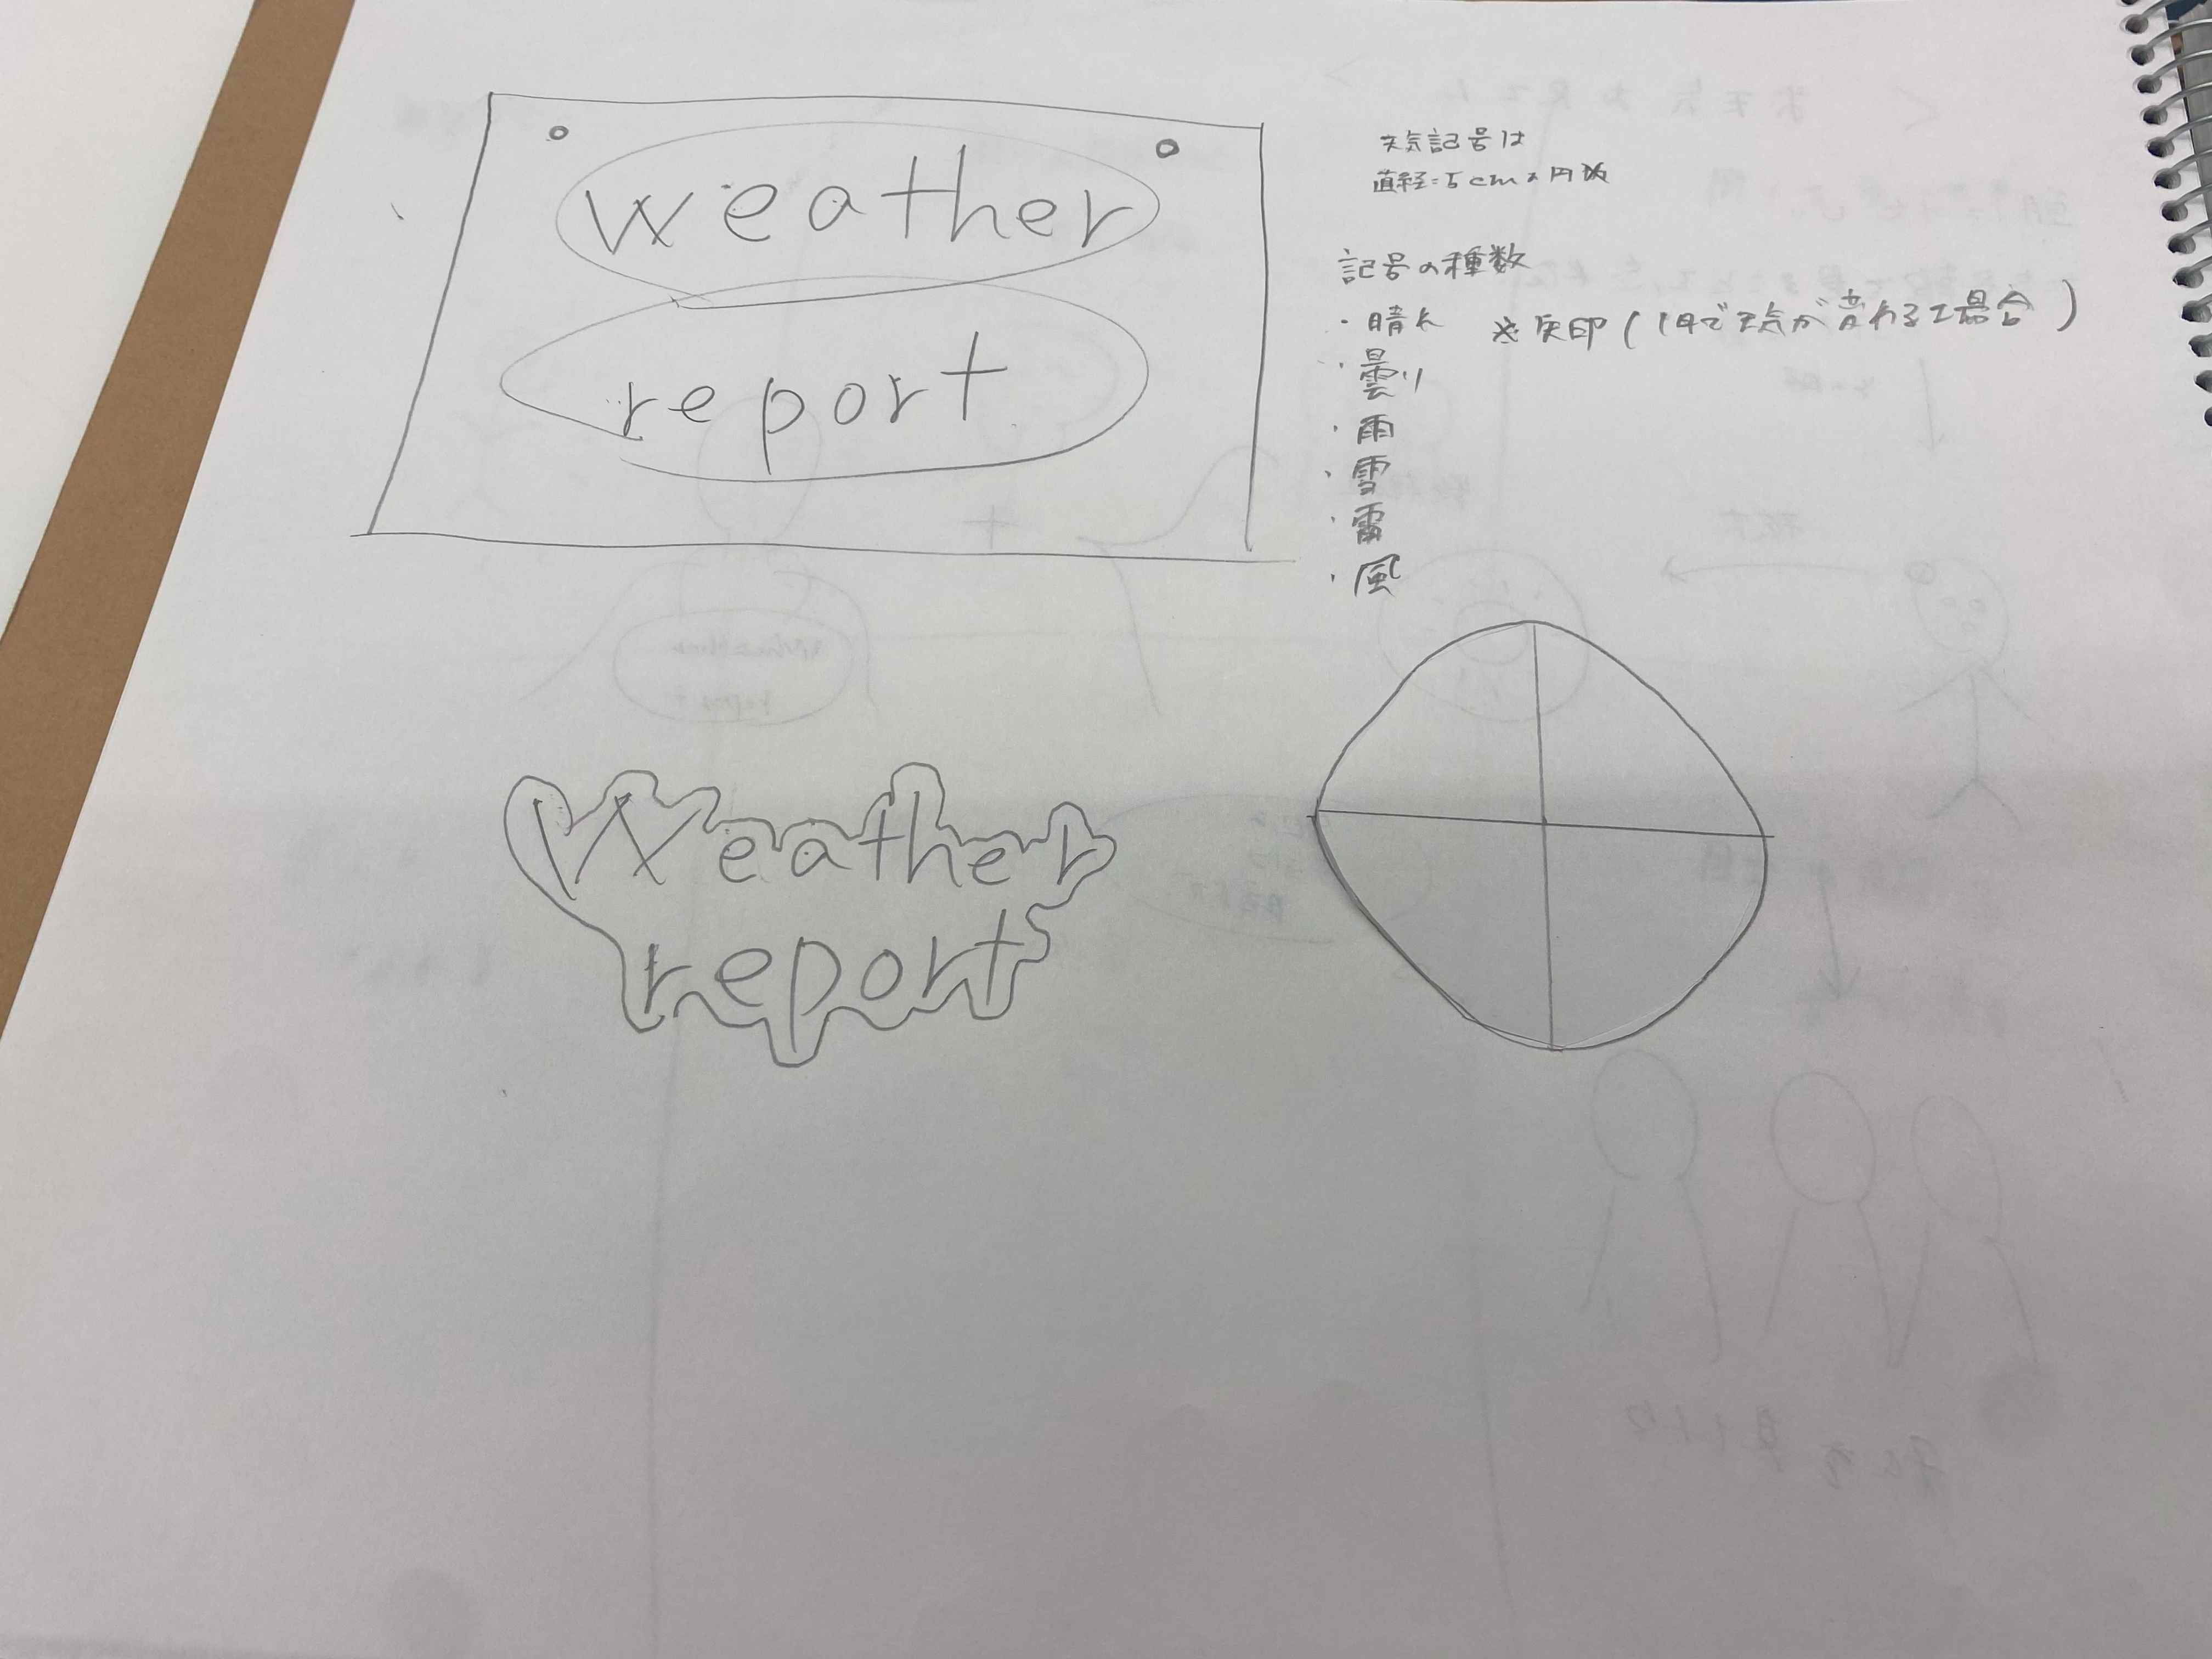 weather
report
天気記号は
直径=5cmの円
記号の種数
・晴れ ※矢印(1日で天気が変わる場合)
・曇り
・雨
・雪
・雷
・風
Weather
report